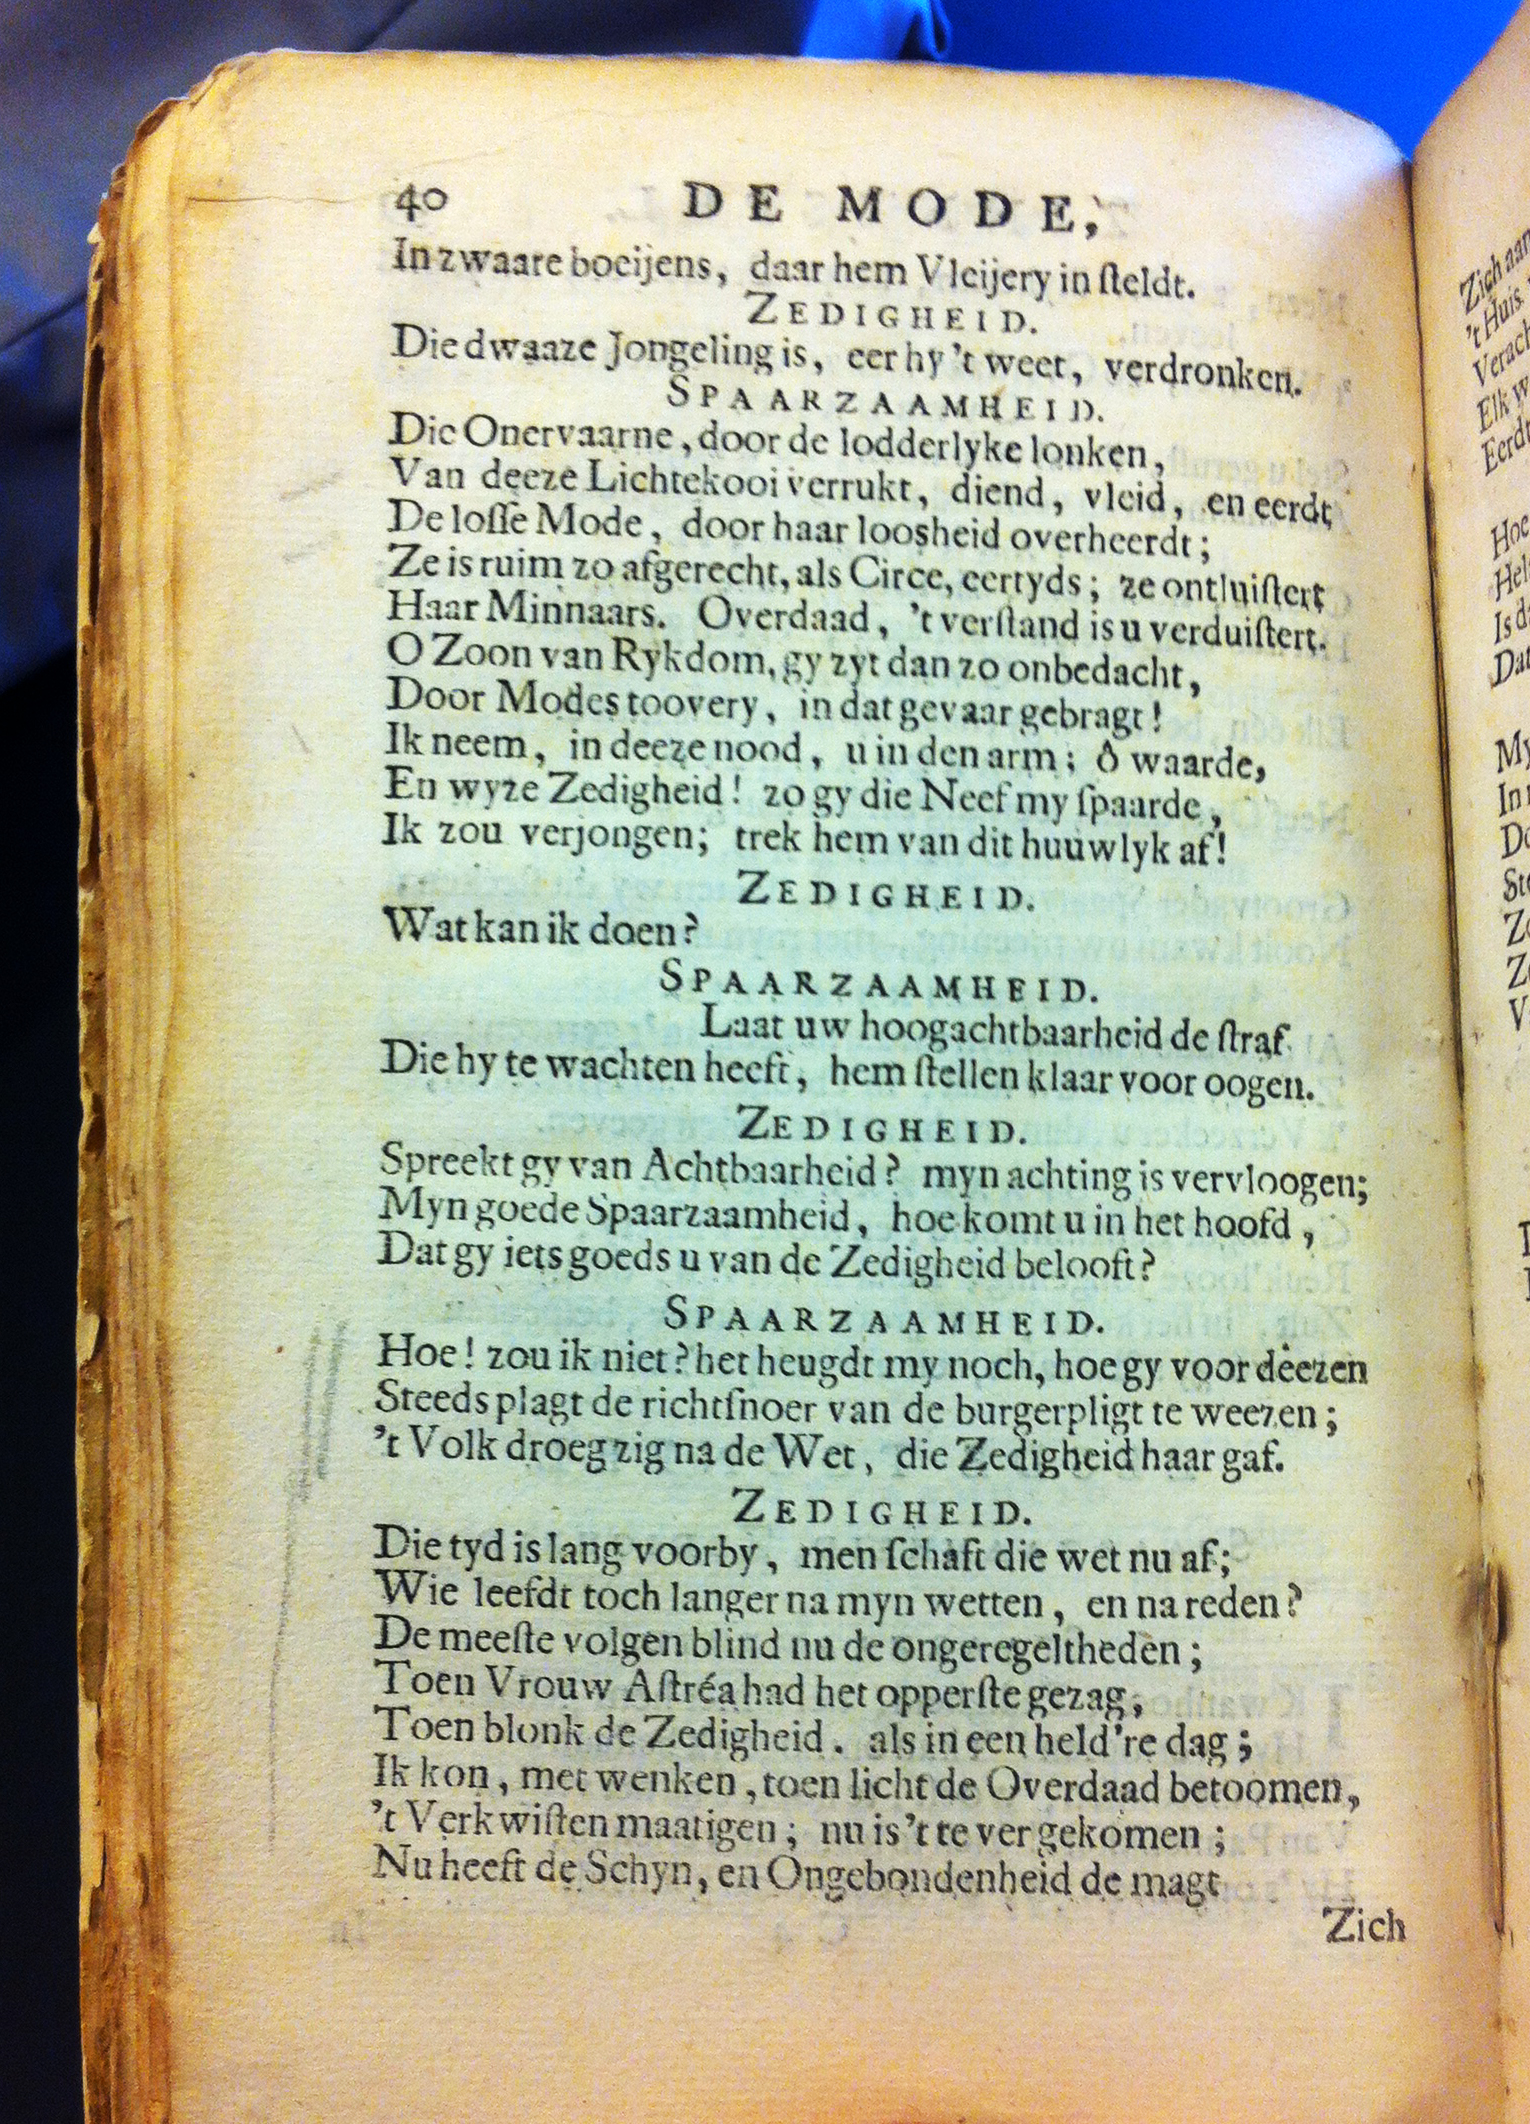 40 DE MODE,
In zwaare boeijens, daar hem Vleijery in ſteldt.
ZEDIGHEID.
Die dwaaze Jongeling is, eer hy 't weet, verdronken.
SPAARZAAMHEID.
Die Onervaarne, door de lodderlyke lonken,
Van deeze Lichtekooi verrukt, diend, vleid, en eerdt
De loſſe Mode, door haar loosheid overheerdt;
Ze is ruim zo afgerecht, als Circe, eertyds; ze ontluiſtert
Haar Minnaars. Overdaad, 't verſtand is u verduiſtert.
O Zoon van Rykdom, gy zyt dan zo onbedacht,
Door Modes toovery, in dat gevaar gebragt!
Ik neem, in deeze nood, u in den arm; ô waarde,
En wyze Zedigheid! zo gy die Neef my ſpaarde,
Ik zou verjongen; trek hem van dit huuwlyk af!
ZEDIGHEID.
Wat kan ik doen?
SPAARZAAMHEID.
Laat uw hoogachtbaarheid de ſtraf
Die hy te wachten heeft, hem ſtellen klaar voor oogen.
ZEDIGHEID.
Spreekt gy van Achtbaarheid? myn achting is vervloogen;
Myn goede Spaarzaamheid, hoe komt u in het hoofd,
Dat gy iets goeds u van de Zedigheid belooft?
SPAARZAAMHEID.
Hoe! zou ik niet? het heugdt my noch, hoe gy voor deezen
Steeds plagt de richtſnoer van de burgerpligt te weezen;
't Volk droeg zig na de Wet, die Zedigheid haar gaf.
ZEDIGHEID.
Die tyd is lang voorby, men ſchaft die wet nu af;
Wie leefdt toch langer na myn wetten, en na reden?
De meeſte volgen blind nu de ongeregeltheden;
Toen Vrouw Aſtréa had het opperſte gezag,
Toen blonk de Zedigheid. als in een held're dag;
Ik kon, met wenken, toen licht de Overdaad betoomen,
't Verkwiſten maatigen; nu is 't te ver gekomen;
Nu heeft de Schyn, en Ongebondenheid de magt
Zich